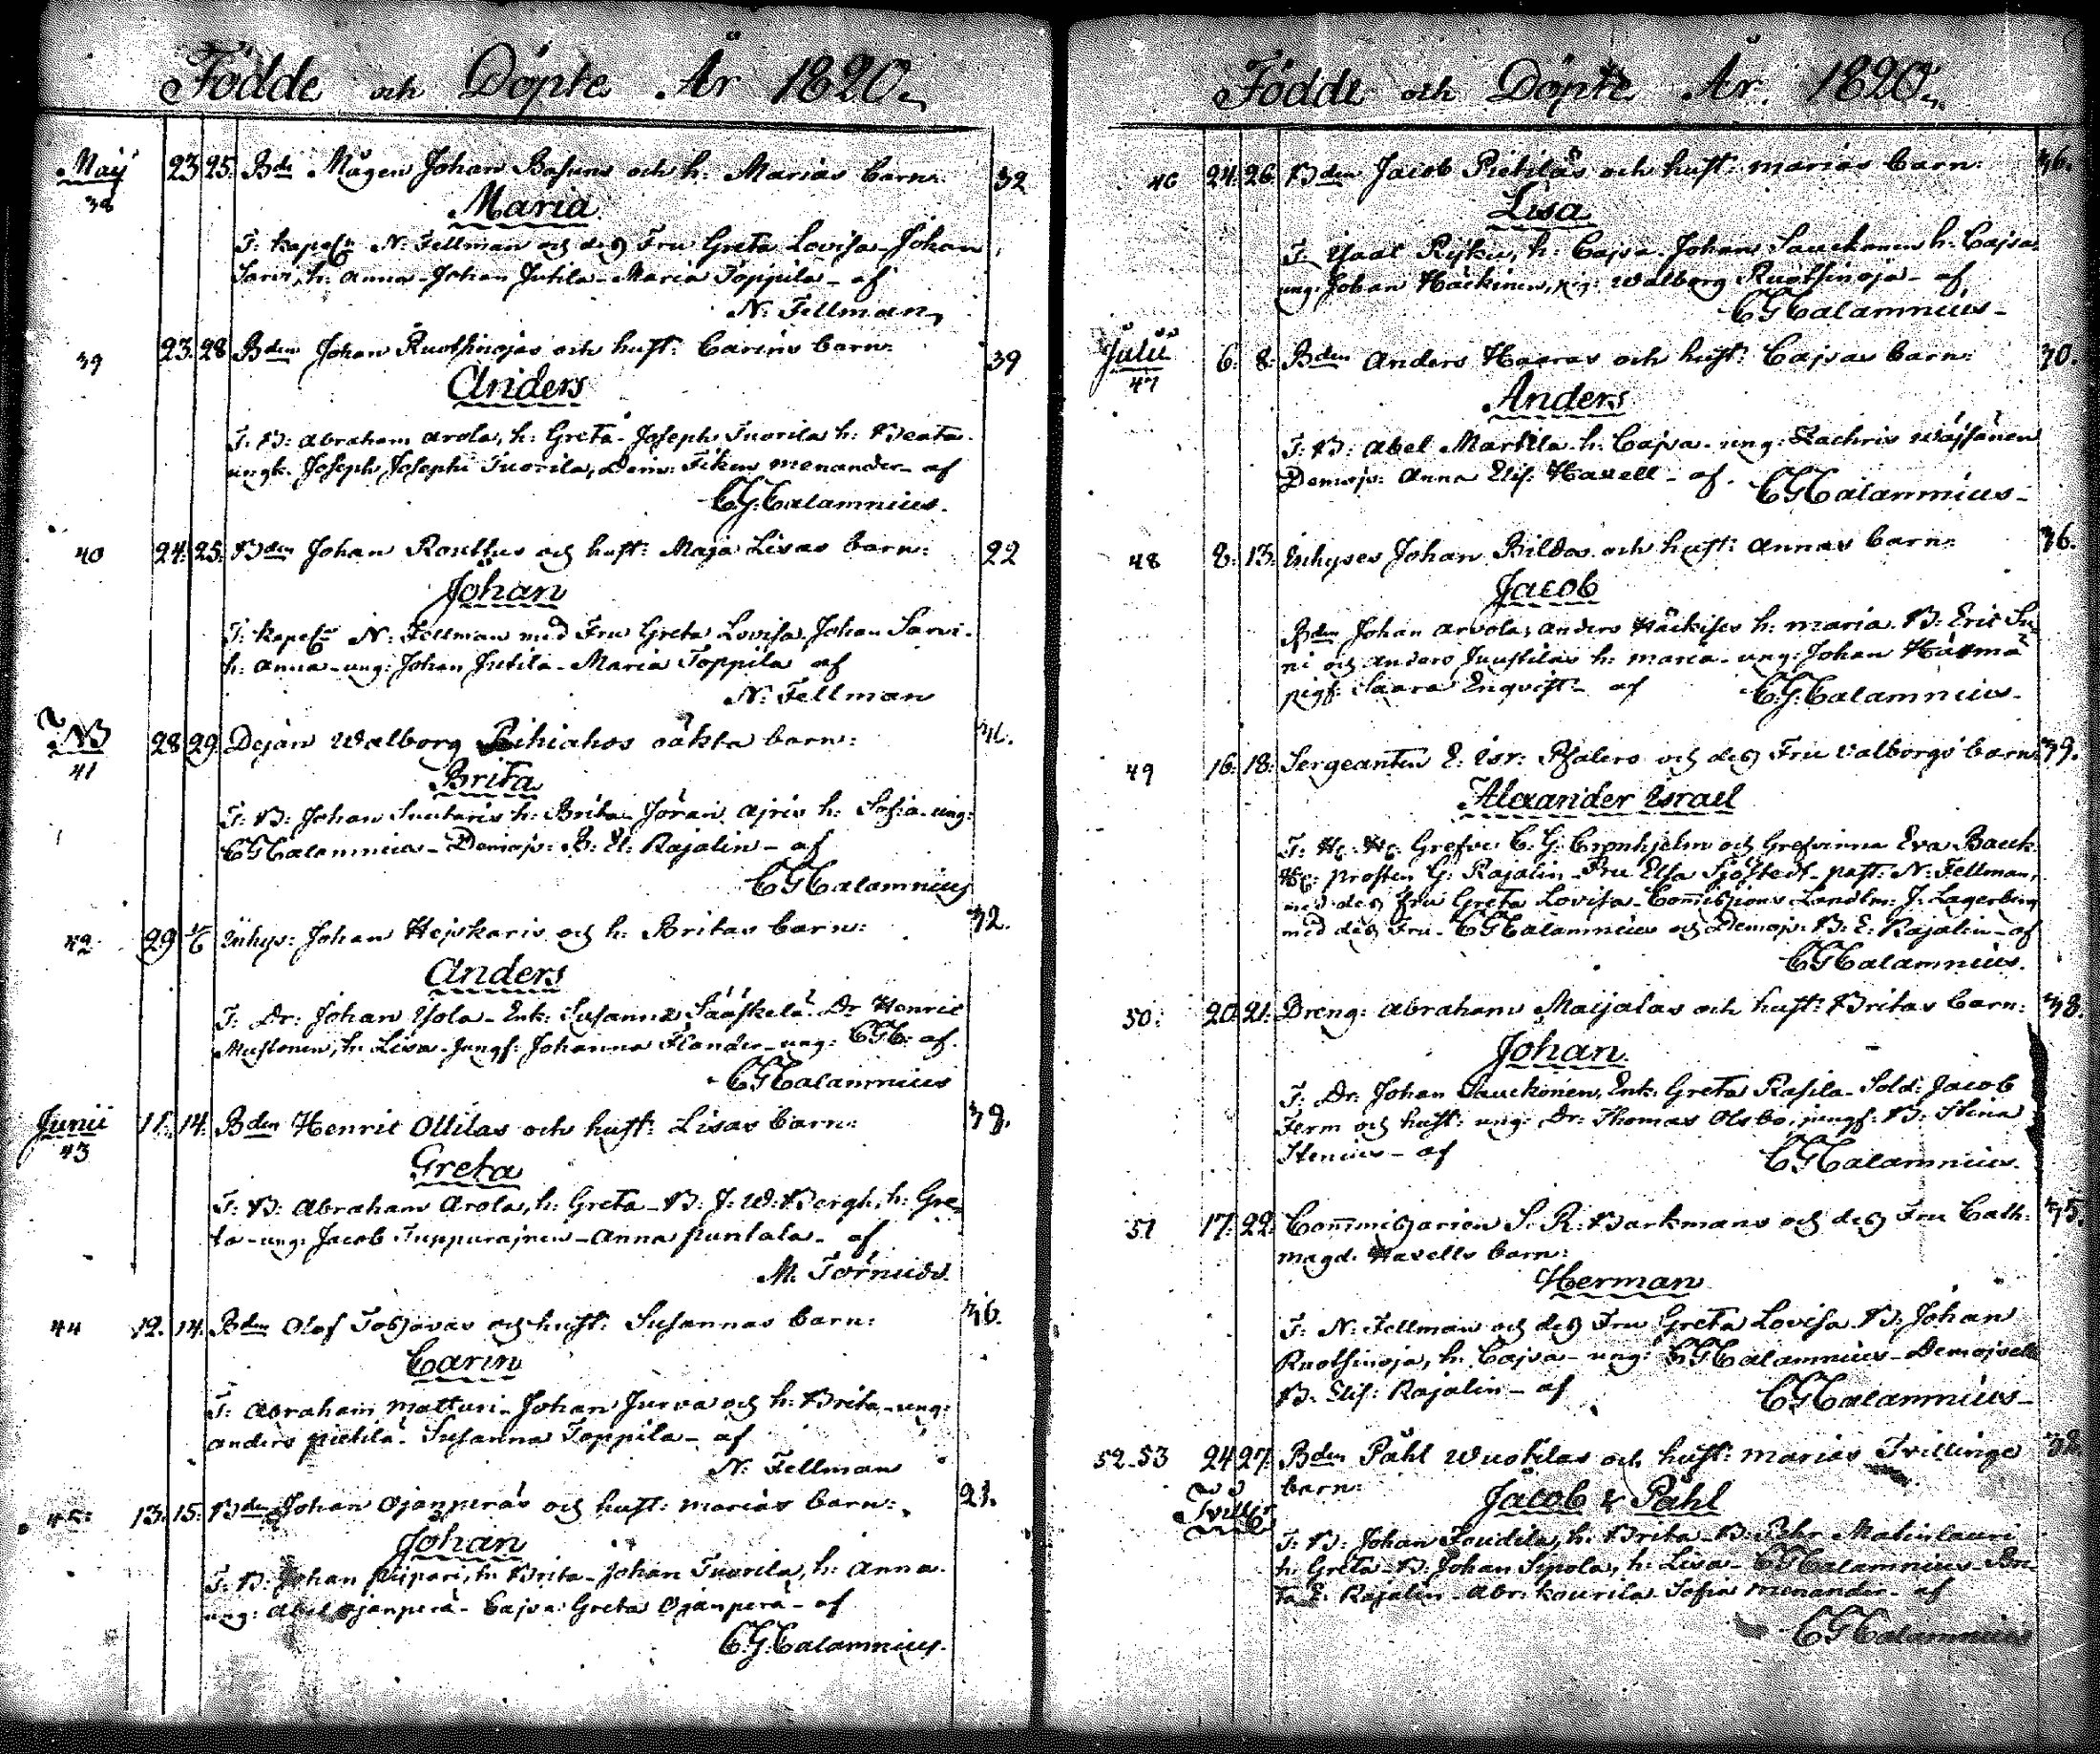 Födde och Döpte År 1820.
Maij 23 25. Bde Mågen Johan Basuns och h: Marias barn: 32
38
Maria
T: kapeln N: Fellman och dess Fru Greta Lovisa Johan
Sarvi, h: Anna - Johan Jutila - Maria Toppila - af
N: Fellman
39 23. 28 Bden Johan Ruothinojas och hust: Carins barn: 39
Anders
T: B: Abraham Arola, h: Greta - Joseph Tuorila h: Beata -
ungk. Joseph Josephi Tuorila, Dem: Fiken Menander - af
C.G. Calamnius.
40 24. 25. Bden Johan Ronttus och hust: Maja Lisas barn: 22
Johan
T: kapeln N: Fellman med Fru Greta Lovisa Johan Sarvi -
h: Anna - ung: Johan Jutila - Maria Toppila af
N: Fellman
NB 28 29 Dejan Walborg oäkta barn: 
41
Brita
T: B: Johan Suutaris h: Brita - Jöran Ajris h: Sofia - ung:
CGCalamnius - Demojs: B: El: Rajalin - af
CGCalamnius
42 29 1/6 Inhys: Johan Hejskaris och h: Britas barn: 32.
Anders
T: Dr: Johan Yola - Enk: Susanna Sääskelä - Dr Henric
Mustonen, h: Lisa - Jungf: Johanna Flander - ung: CGC: af.
CGCalamnius
Junii 11. 14. Bden Henric Ollilas och hust: Lisas barn: 38.
43
Greta
T: B: Abraham Arola, h: Greta - B: J: W: Bergh, h: Gre-
ta - ung: Jacob Tuppurajnen - Anna puntala - af
M. Tornudd.
44 12. 14. Bden Olof Tossavas och hust: Susannas barn: 36.
Carin
T: Abraham Matturi - Johan Jurva och h: Brita - ung:
Anders pietilä - Susanna Toppila - af
N: Fellman
45: 13. 15. Bden Johan Ojanperäs och hust: Marias barn: 21.
Johan
T: B: Johan piipari, h: Brita - Johan Tuorila, h: Anna.
ung: Abel Ojanperä - Cajsa Greta Ojanperä - af
C.G. Calamnius.
Födde och Döpte År. 1820.
46 24. 26. Bden Jacob Pietiläs och hust: Marias barn: 36.
Lisa
T: Isaac Ryku, h: Cajsa - Johan Sauckonen h: Cajsa
ung: Johan Häckinen, pig: Walborg Ruothinoja - af
CGCalamnius -
Julii 6. 8. Bden Anders Haaras och hust: Cajsas barn: 30.
47
Anders
T: B: Abel Marttila h: Cajsa - ung: Zachris Wäjsänen
Demojs: Anna Elis: Havell - af. CGCalamnius -
48 8. 13. Inhyses Johan Bildos och hust: Annas barn: 36.
Jacob
Bden Johan Arvola, Anders Häckises h: Maria - B: Eric Su-
ni och Anders Juustilas h: Maria - ung: Johan Härmä
pigf: Saara Enqvist - af C.G. Calamnius.
49 16. 18. Sergeanten E: Isr: Phalers och dess Fru Valborgs barn: 39.
Alexander Israel
T: Hr. Hr. Grefve C. G. Cronhjelm och Grefvinna Eva Bauck
Hr: prosten G: Rajalin - Fru Elsa Sjöstedt - past: N: Fellman,
med dess fru Greta Lovisa - Commissions Landtm: J. Lagerberg
med dess Fru - CGCalamnius och Demojs: B: E: Rajalin - af
CGCalamnius.
50: 20. 21. Dreng: Abraham Maijalas och hust: Britas barn: 38.
Johan
T: Dr: Johan Sauckonen, Enk: Greta Rasila - Sold: Jacob
Ferm och hust: ung: Dr: Thomas Olsbo, jungf: B: Stina
Stenius - af CGCalamnius.
51 17. 22. Commissarien S. R: Barkmans och dess Fru Cath:
magd. Havells barn: 35.
Herman
T: N: Fellman och dess Fru Greta Lovisa - B: Johan
Ruothinoja, h: Cajsa - ung: CGCalamnius - Demojsell
B: Elis: Rajalin - af CGCalamnius -
52-53 24 27. Bden Påhl Wuotilas och hust: Marias Tvillinge 32
barn:
Jacob & Påhl
T: B: Johan Foudila, h: Brita - B: Pehr Matinlauri
h: Greta - B: Johan Sipola, h: Lisa - CGCalamnius - Bri-
ta E: Rajalin - Abr: kourila - Sofia Menander - af
CGCalamnius